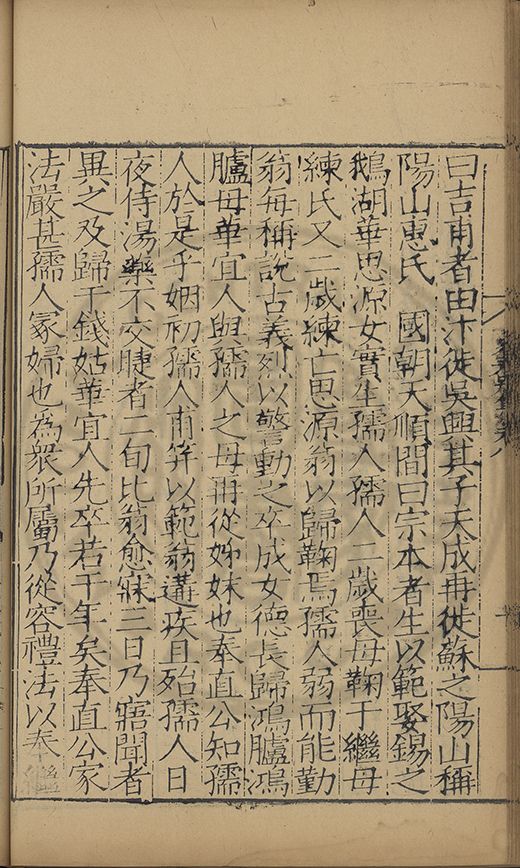 曰吉甫者由汴徙吳興其子天成再徙蘇之陽山稱
陽山惠氏　國朝天順間曰宗本者生以範娶錫之
鵝湖華思源女實生孺人孺人二歲喪母鞠于繼母
練氏又二歲練亡思源翁以歸鞠焉孺人弱而能勤
翁每稱說古義烈以警動之卒成女德長歸鴻臚鴻
臚母華宜人與孺人之母再從姊妹也奉直公知孺
人於是乎姻初孺人甫笄以範翁遘疾且殆孺人日
夜侍湯藥不交睫者二旬比翁愈寐三日乃寤聞者
異之及歸于錢姑華宜人先卒若干年矣奉直公家
法嚴甚孺人冢婦也為衆所屬乃從容禮法以奉